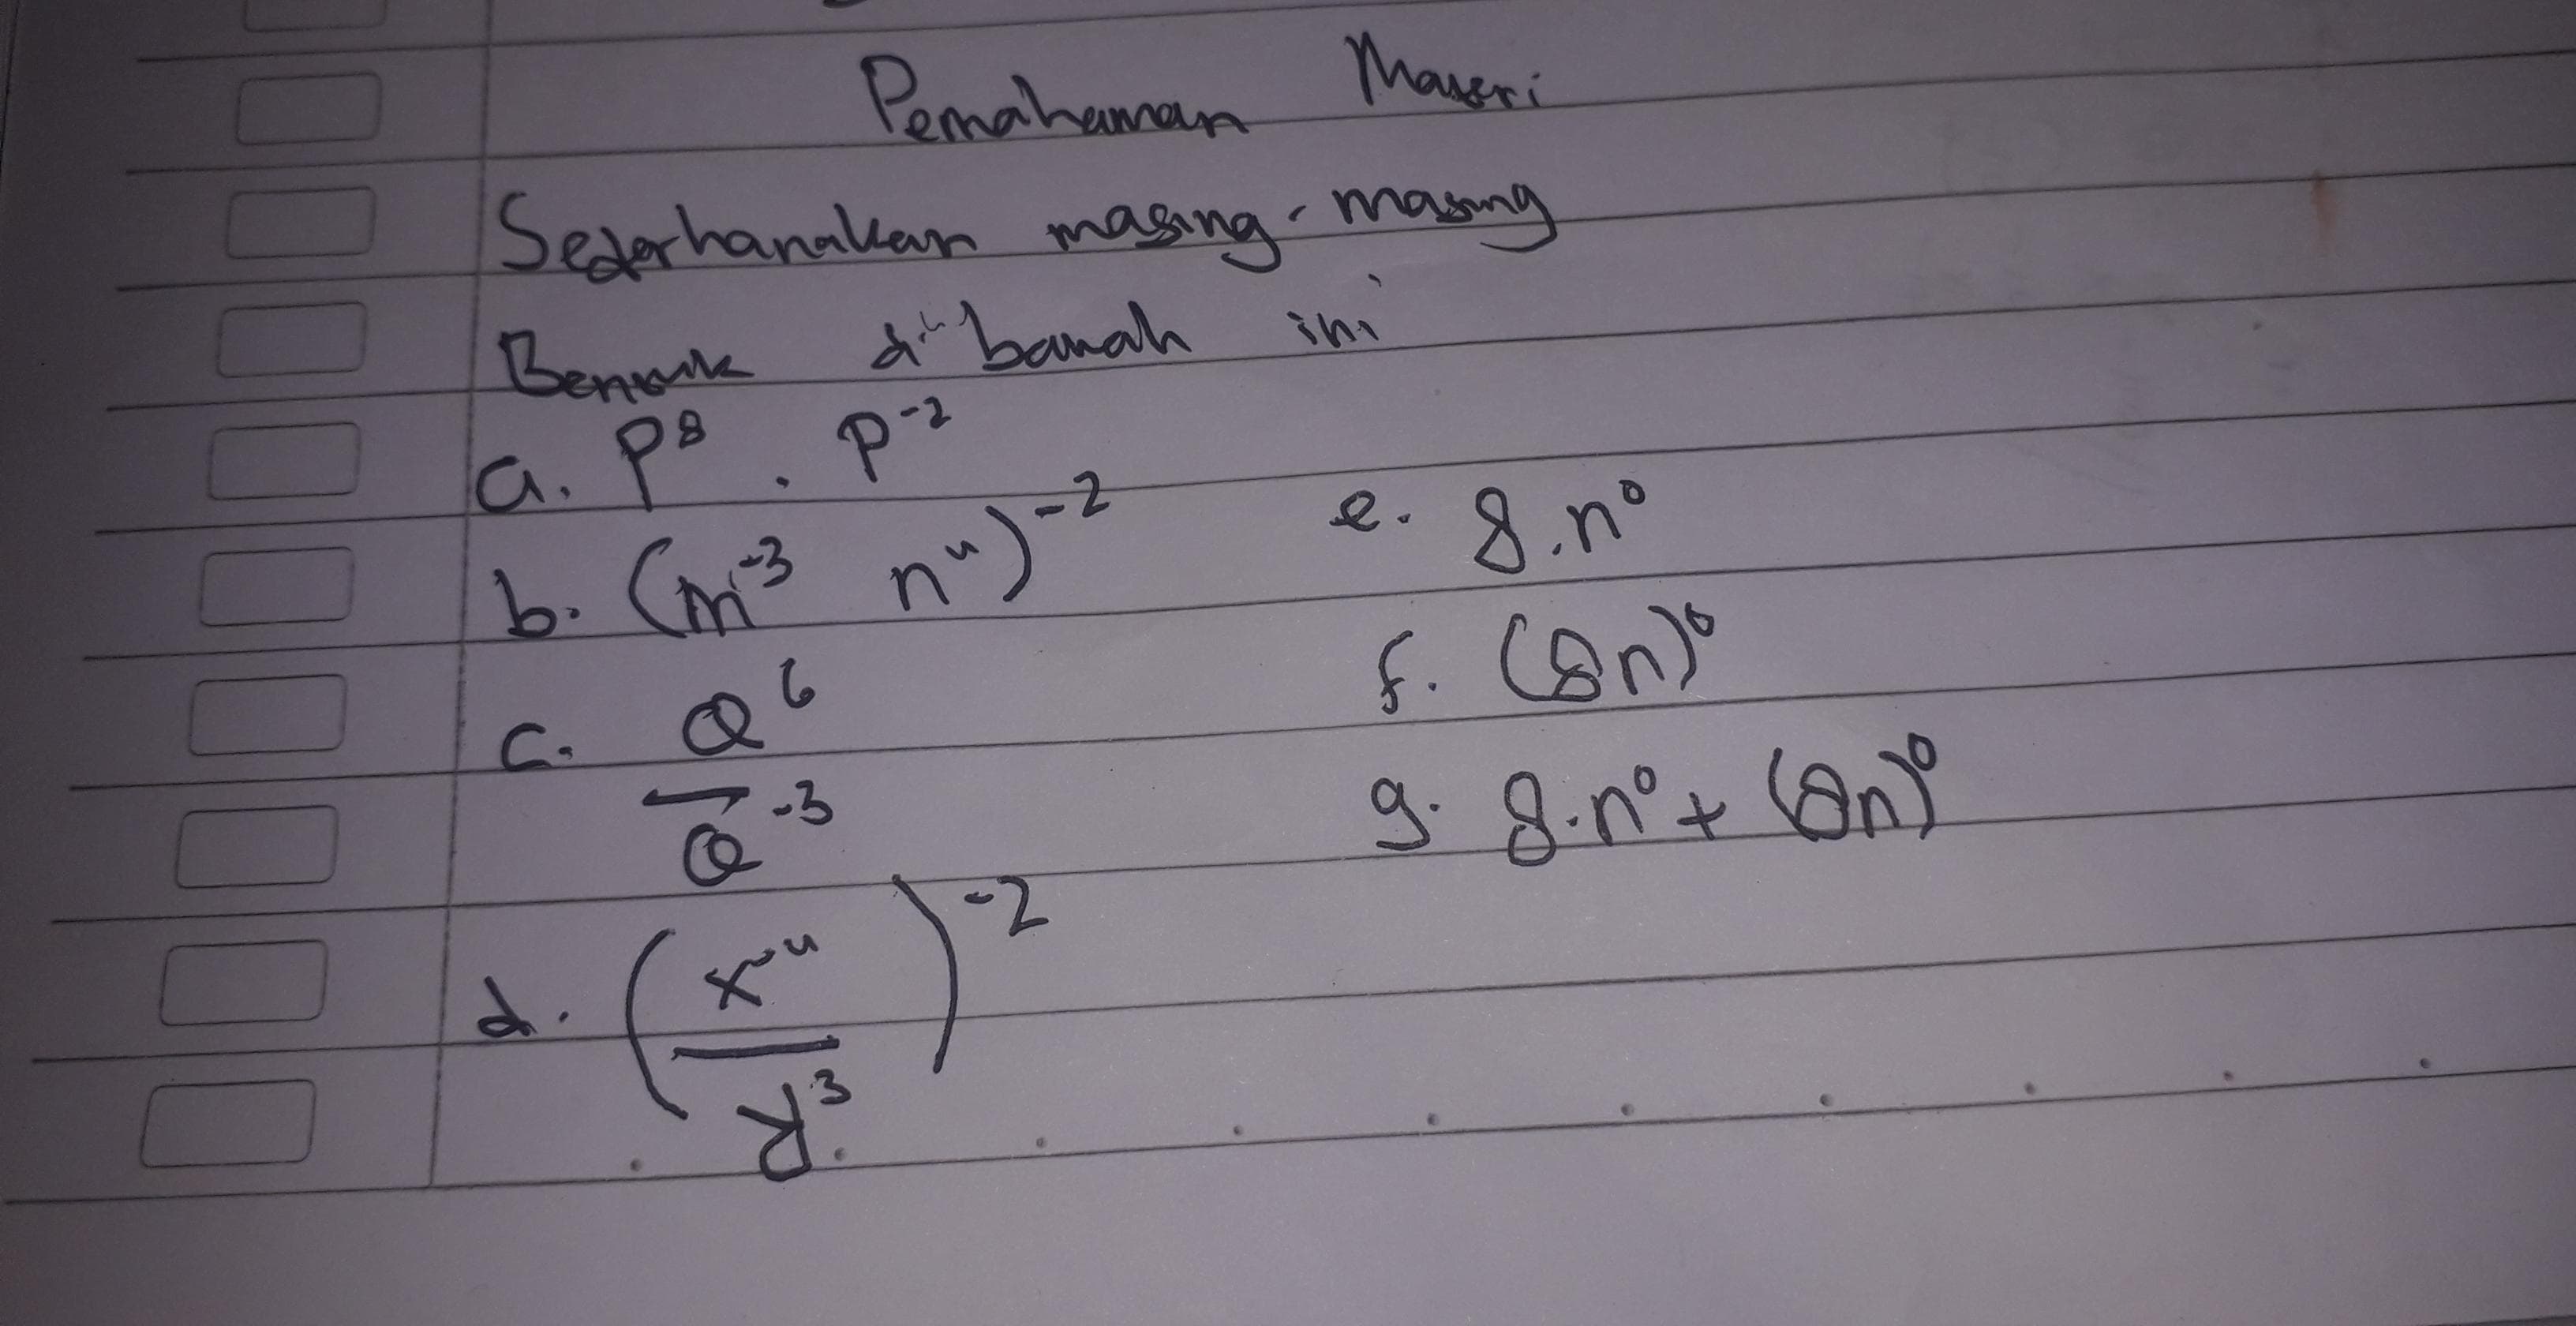 Pemahaman Materi
Sederhanakan masing-masing
Bentuk di bawah ini
a. P⁸ . P⁻²
b. (m⁻³ n⁴)⁻²
c. Q⁶ / Q⁻³
d. (x⁻⁴ / y³)⁻²
e. 8.n⁰
f. (8n)⁰
g. 8.n⁰ + (8n)⁰